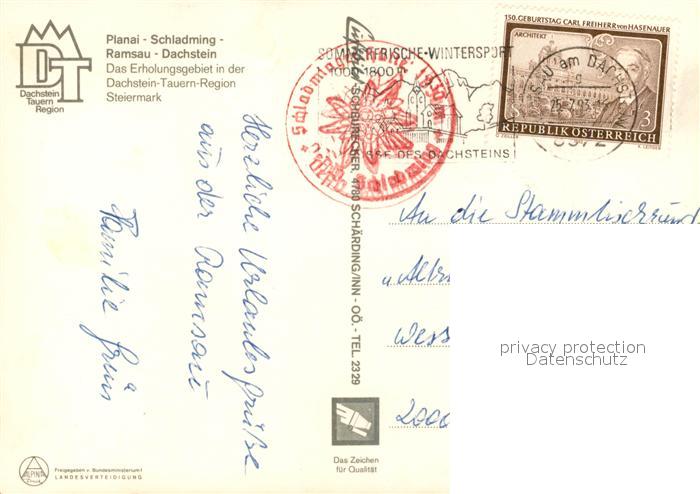 Planai - Schladming -
Ramsau - Dachstein
Das Erholungsgebiet in der
Dachstein-Tauern-Region
Steiermark
DT
Dachstein
Tauern
Region
Herzliche Urlaubsgrüße
aus der Ramsau
Familie Grüis
ALPINA
Freigegeben v. Bundesministerium f.
LANDESVERTEIDIGUNG
SCHEURECKER, 4780 SCHÄRDING/INN - OÖ. - TEL. 2329
Das Zeichen
für Qualität
SOMMERFRISCHE-WINTERSPORT
1000-1800
DES DACHSTEINS
Schladming
am DACHSTEIN
25.7.83
8972
150. GEBURTSTAG CARL FREIHERR von HASENAUER
ARCHITEKT
3
REPUBLIK ÖSTERREICH
An die Stammtisch
2000
privacy protection
Datenschutz